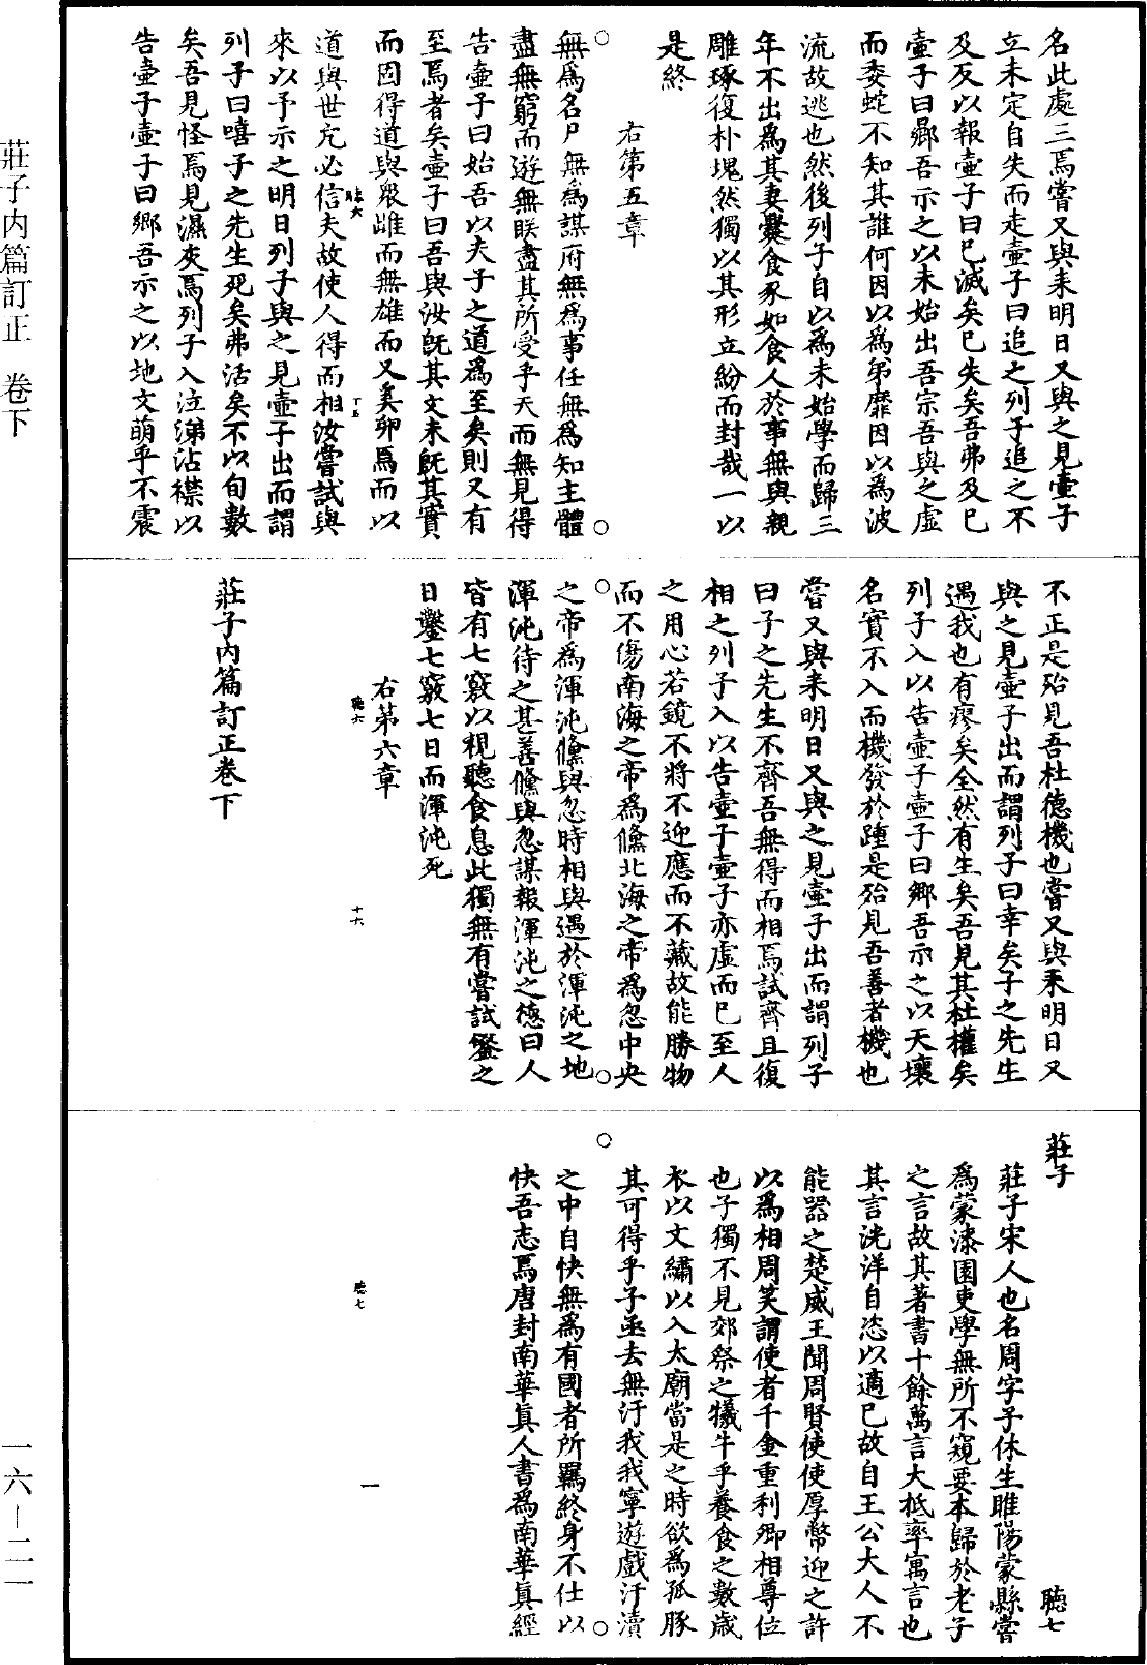 名此處三焉嘗又與来明日又與之見壺子
立未定自失而走壺子曰追之列子追之不
及反以報壺子曰已滅矣已失矣吾弗及已
壺子曰鄉吾示之以未始出吾宗吾與之虛
而委蛇不知其誰何因以爲弟靡因以爲波
流故逃也然後列子自以爲未始學而歸三
年不出爲其妻爨食豕如食人於事無與親
雕琢復朴塊然獨以其形立紛而封哉一以
是終
右第五章
無爲名尸無爲謀府無爲事任無爲知主體
盡無窮而遊無朕盡其所受乎天而無見得
告壺子曰始吾以夫子之道爲至矣則又有
至焉者矣壺子曰吾與汝旣其文未旣其實
而固得道與衆雌而無雄而又奚卵焉而以
聽六 十五
道與世亢必信夫故使人得而相汝嘗試與
來以予示之明日列子與之見壺子出而謂
列子曰嘻子之先生死矣弗活矣不以旬數
矣吾見怪焉見濕灰焉列子入泣涕沾襟以
告壺子壺子曰鄉吾示之以地文萌乎不震
不正是殆見吾杜德機也嘗又與来明日又
與之見壺子出而謂列子曰幸矣子之先生
遇我也有瘳矣全然有生矣吾見其杜權矣
列子入以告壺子壺子曰鄉吾示之以天壤
名實不入而機發於踵是殆見吾善者機也
嘗又與来明日又與之見壺子出而謂列子
曰子之先生不齊吾無得而相焉試齊且復
相之列子入以告壺子壺子亦虛而已至人
之用心若鏡不將不迎應而不藏故能勝物
而不傷南海之帝爲儵北海之帝爲忽中央
之帝爲渾沌儵與忽時相與遇於渾沌之地
渾沌待之甚善儵與忽謀報渾沌之德曰人
皆有七竅以視聽食息此獨無有嘗試鑿之
日鑿七竅七日而渾沌死
右第六章
聽六 十六
莊子內篇訂正卷下
莊子 聽七
莊子宋人也名周字子休生睢陽蒙縣嘗
爲蒙漆園吏學無所不窺要本歸於老子
之言故其著書十餘萬言大抵率寓言也
其言洸洋自恣以適已故自王公大人不
能器之楚威王聞周賢使使厚幣迎之許
以爲相周笑謂使者千金重利卿相尊位
也子獨不見郊祭之犧牛乎養食之數歲
衣以文繡以入太廟當是之時欲爲孤豚
其可得乎子亟去無汙我我寧遊戲汙瀆
之中自快無爲有國者所羈終身不仕以
快吾志焉唐封南華眞人書爲南華眞經
聽七 一
莊子內篇訂正 卷下
一六—二一